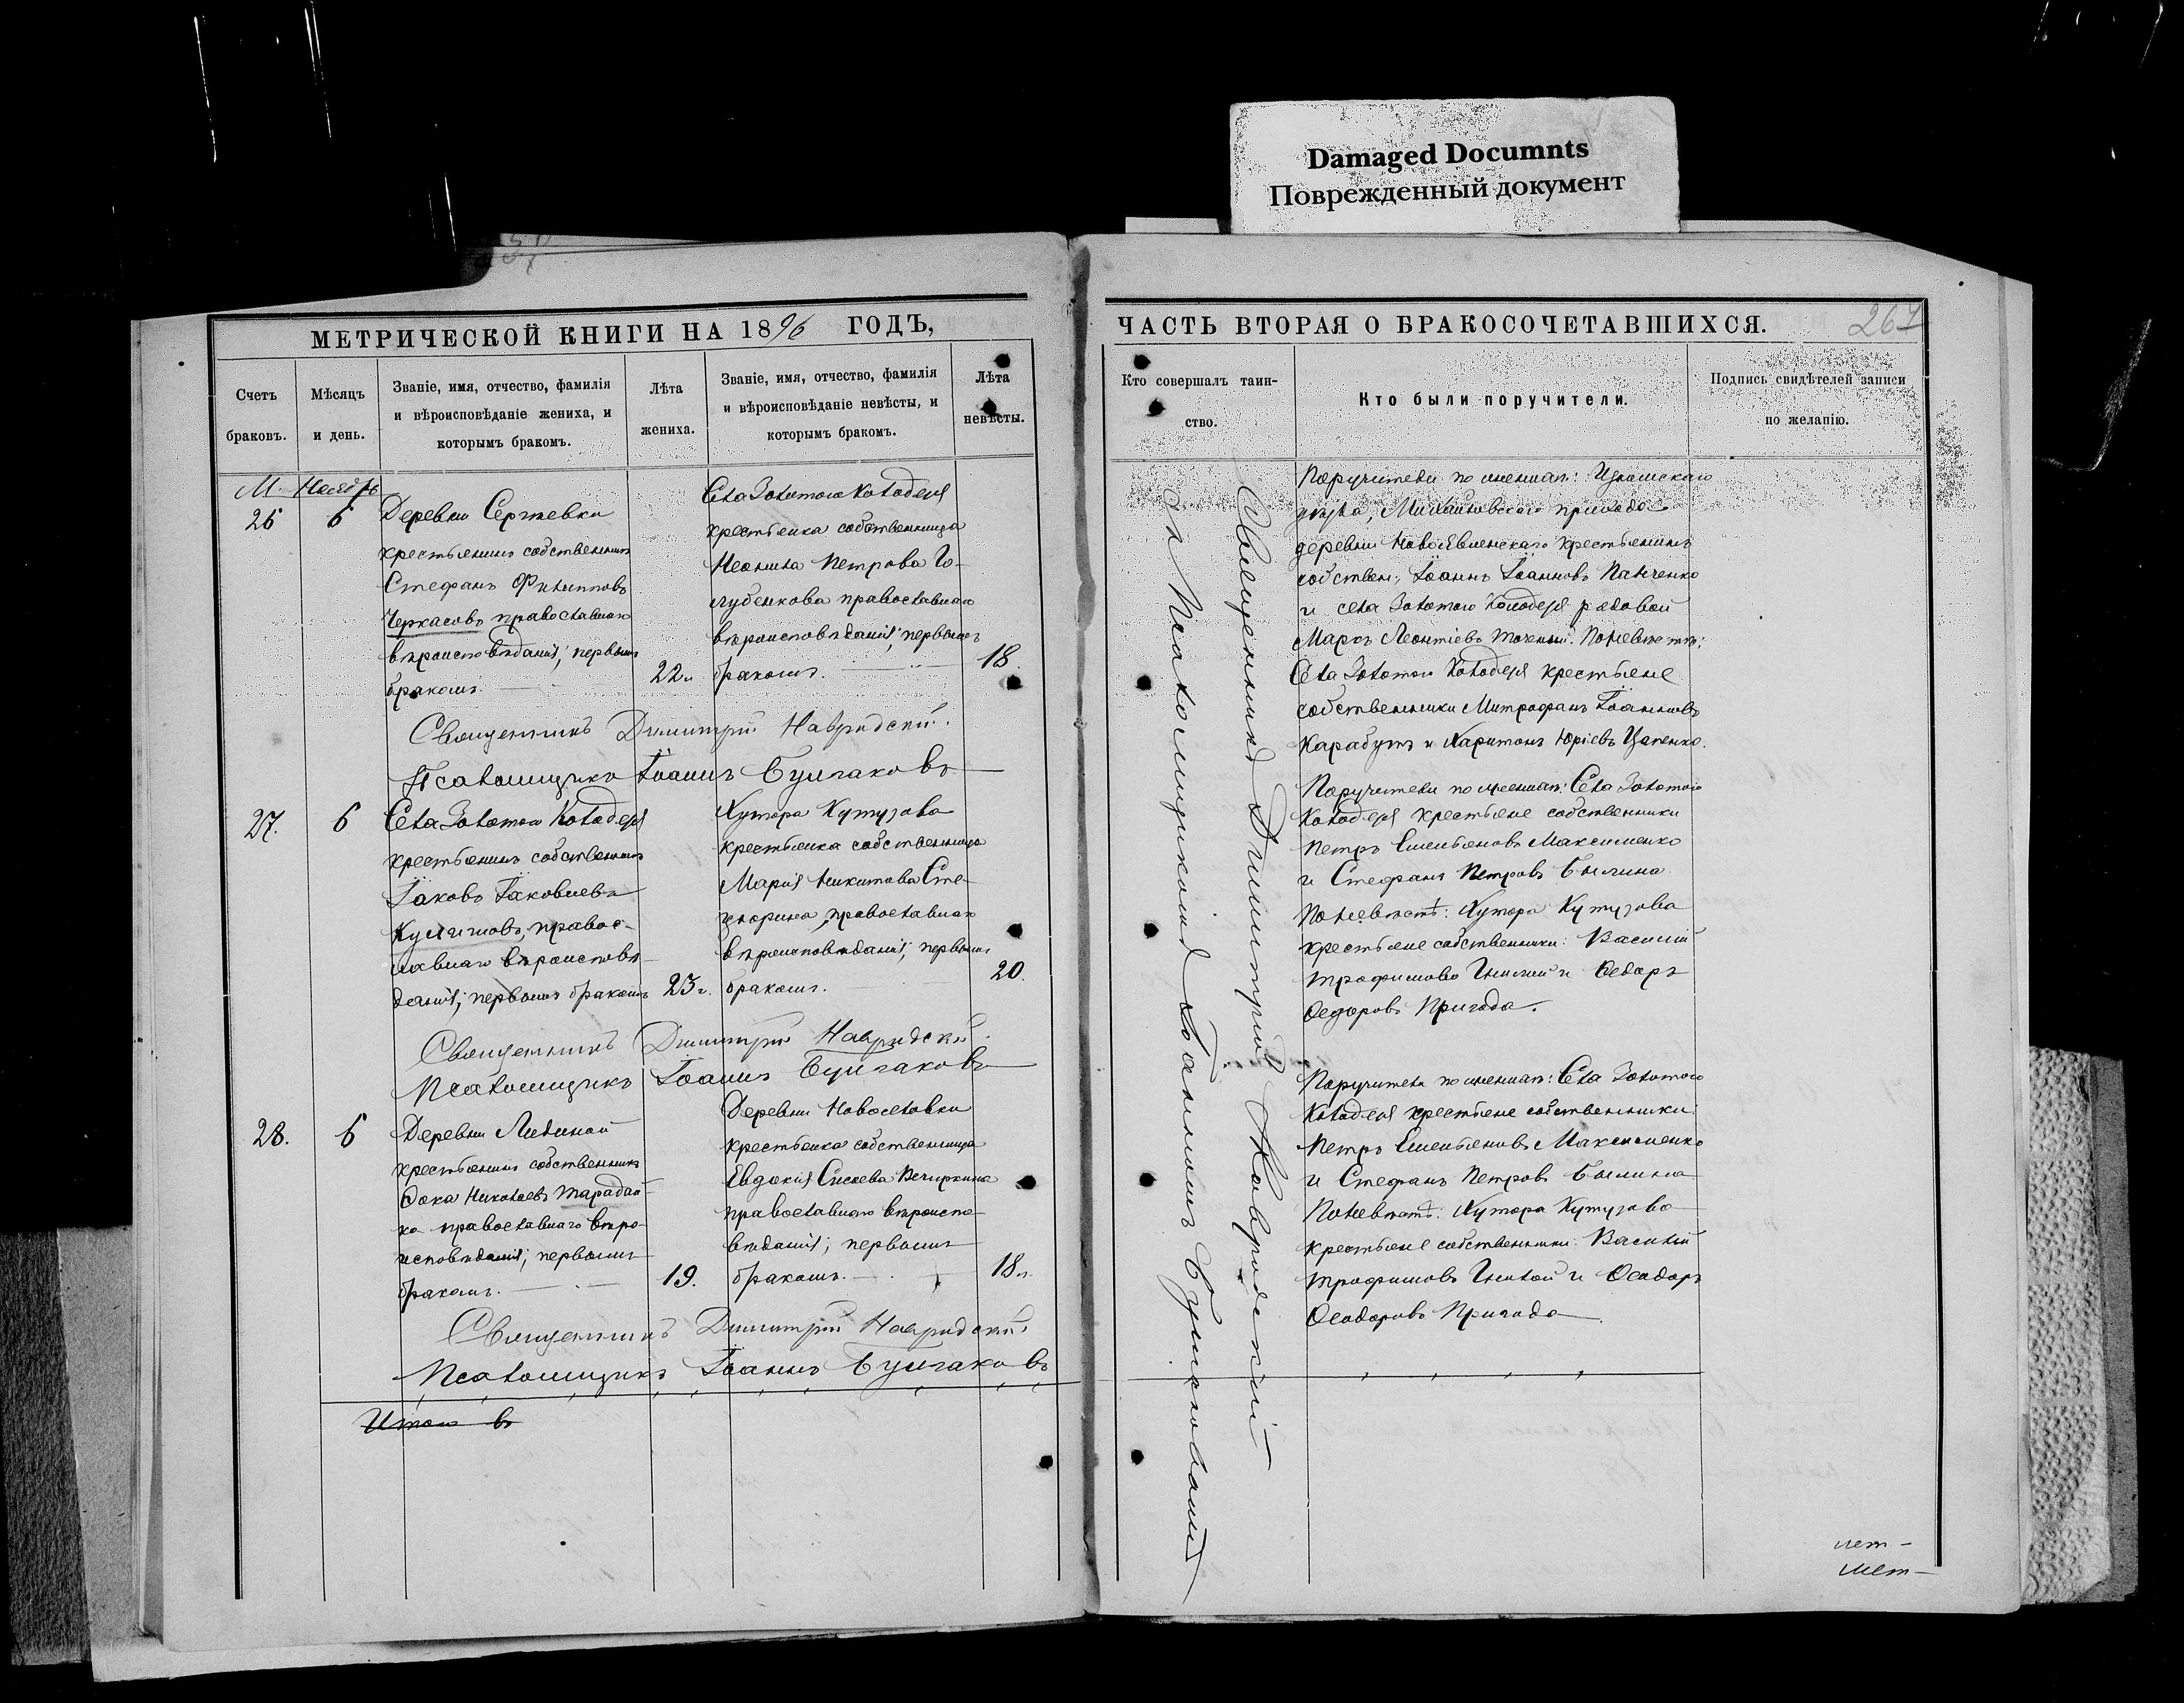 Damaged Documnts
Поврежденный документ
МЕТРИЧЕСКОЙ КНИГИ НА 1896 ГОДЪ,
Счетъ браковъ.
Мѣсяцъ и день.
Званіе, имя, отчество, фамилія
и вѣроисповѣданіе жениха, и
которымъ бракомъ.
Лѣта жениха.
Званіе, имя, отчество, фамилія
и вѣроисповѣданіе невѣсты, и
которымъ бракомъ.
Лѣта невѣсты.
М. Ноябрь
26
6
Деревни Сергѣевки
крестьянинъ собственникъ
Стефанъ Филипповъ
Черкасовъ православнаго
вѣроисповѣданія; первымъ
бракомъ.
22
Села Золотого Колодезя
крестьянка собственница
Неонила Петрова Го-
лубенкова православнаго
вѣроисповѣданія; первымъ
бракомъ.
18.
Священникъ Димитрій Навродскій.
Псаломщикъ Іоаннъ Булгаковъ
27.
6
Села Золотого Колодезя
крестьянинъ собственникъ
Іаковъ Іаковлевъ
православнаго вѣроисповѣ-
данія; первымъ бракомъ
23 г.
Хутора Кутузова
крестьянка собственница
Марія Никитова
православнаго
вѣроисповѣданія; первымъ
бракомъ.
20.
Священникъ Димитрій Навродскій.
Псаломщикъ Іоаннъ Булгаковъ
28.
6
Деревни Лидиной
крестьянинъ собственникъ
Николаевъ Тарадай-
ка православнаго вѣро-
исповѣданія; первымъ
бракомъ.
19.
Деревни Новоселовки
крестьянка собственница
Евдокія Сисоева Вечиркина
православнаго вѣроиспо-
вѣданія; первымъ
бракомъ.
18
Священникъ Димитрій Навродскій
Псаломщикъ Іоаннъ Булгаковъ
Итого въ
ЧАСТЬ ВТОРАЯ О БРАКОСОЧЕТАВШИХСЯ.
267
Кто совершалъ таин-
ство.
Кто были поручители.
Подпись свидѣтелей записи
по желанію.
Священникъ Димитрій Навродскій
съ Псаломщикомъ Іоанномъ Булгаковымъ
Поручители по женихѣ: Изюмскаго
уѣзда, Михайловскаго прихода
деревни крестьянинъ
собствен: Іоаннъ Іоанновъ Панченко
и села Золотого Колодезя рядовой
Маркъ Леонтіевъ По невѣстѣ:
Села Золотого Колодезя крестьяне
собственники Митрофанъ Іоанновъ
Карабутъ и Харитонъ Юріевъ Цапенко.
Поручители по женихѣ: Села Золотого
Колодезя крестьяне собственники
Петръ Емельяновъ Максименко
и Стефанъ Петровъ Былина
По невѣстѣ: Хутора Кутузова
крестьяне собственники: Василій
Трофимовъ Гнилой и Ѳедоръ
Ѳедоровъ Пригода.
Поручители по женихѣ: Села Золотого
Колодезя крестьяне собственники
Петръ Емельяновъ Максименко
и Стефанъ Петровъ Былина
По невѣстѣ: Хутора Кутузова
крестьяне собственники: Василій
Трофимовъ Гнилой и Ѳеодоръ
Ѳеодоровъ Пригода